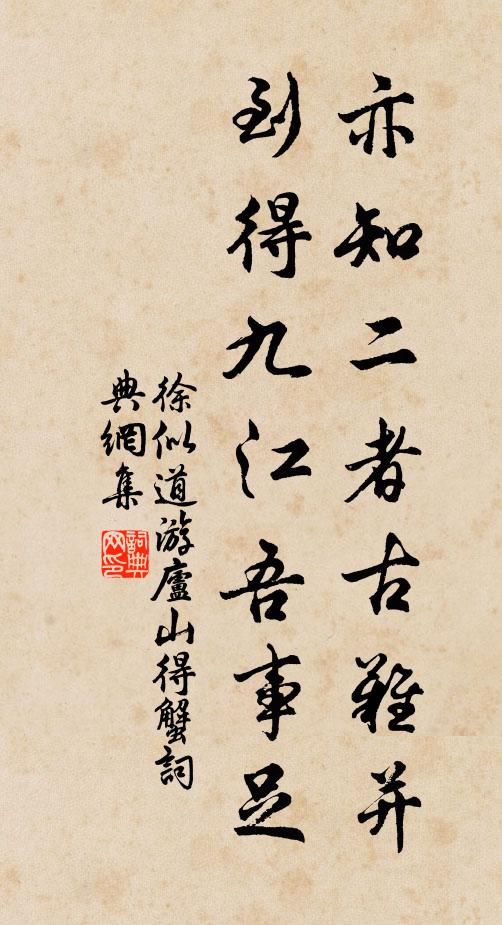 亦知二者古難并
到得九江吾事足
徐似道游廬山得蟹詞
典網集
詞典
网印